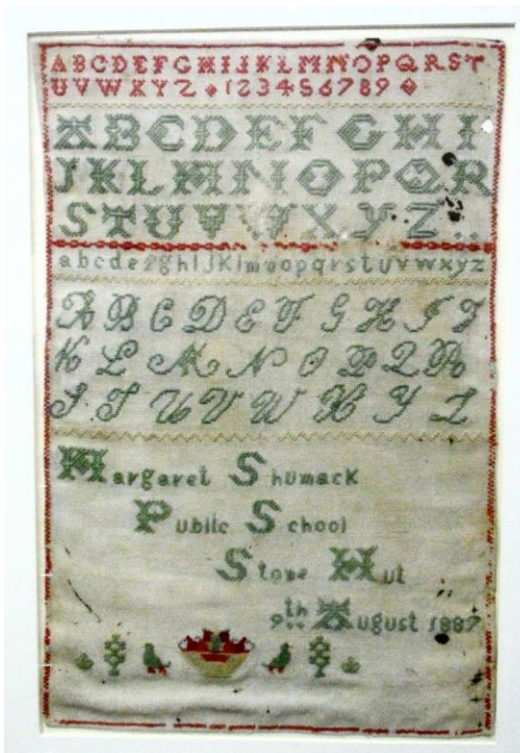 ABCDEFGHIJKLMNOPQRST
UVWXYZ 123456789
ABCDEFGHI
JKLMNOPQR
STUVWXYZ..
abcdefghijklmnopqrstuvwxyz
ABCDEFGHIJ
KLMNOPQR
STUVWXYZ
Margaret Shumack
Public School
Stone Hut
9th August 1887